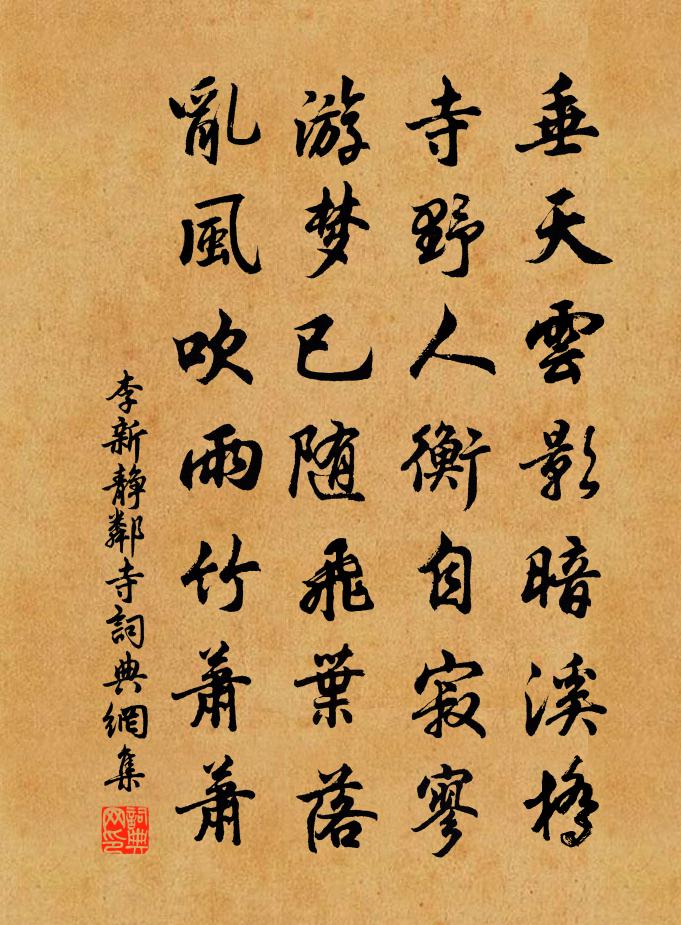 垂天雲影暗溪橋
寺野人衡自寂寥
游梦已随飛葉落
亂風吹雨竹蕭蕭
李新靜鄰寺詞典網集
詞典网印